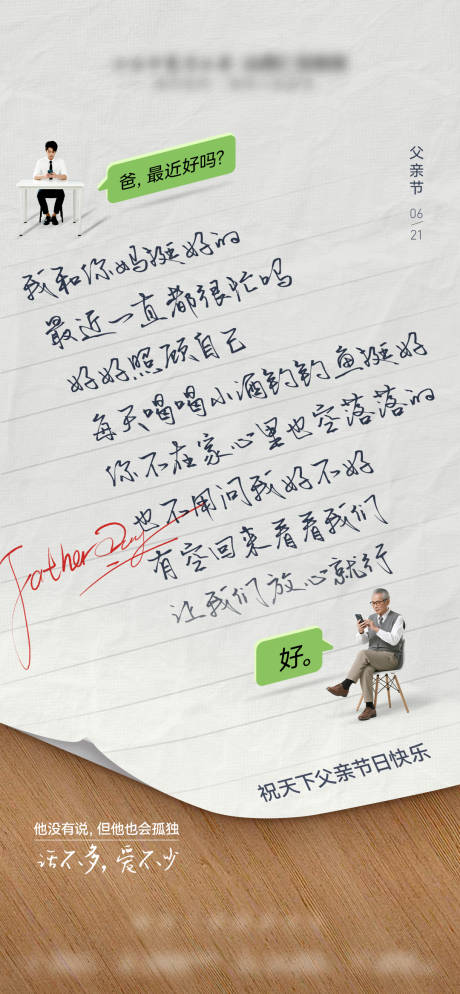 爸,最近好吗?
父亲节
06
21
我和你妈挺好的
最近一直都很忙吗
好好照顾自己
每天喝喝小酒钓钓鱼挺好
你不在家心里也空落落的
也不用问我好不好
有空回来看看我们
让我们放心就行
Father Day
好。
祝天下父亲节日快乐
他没有说,但他也会孤独
话不多,爱不少